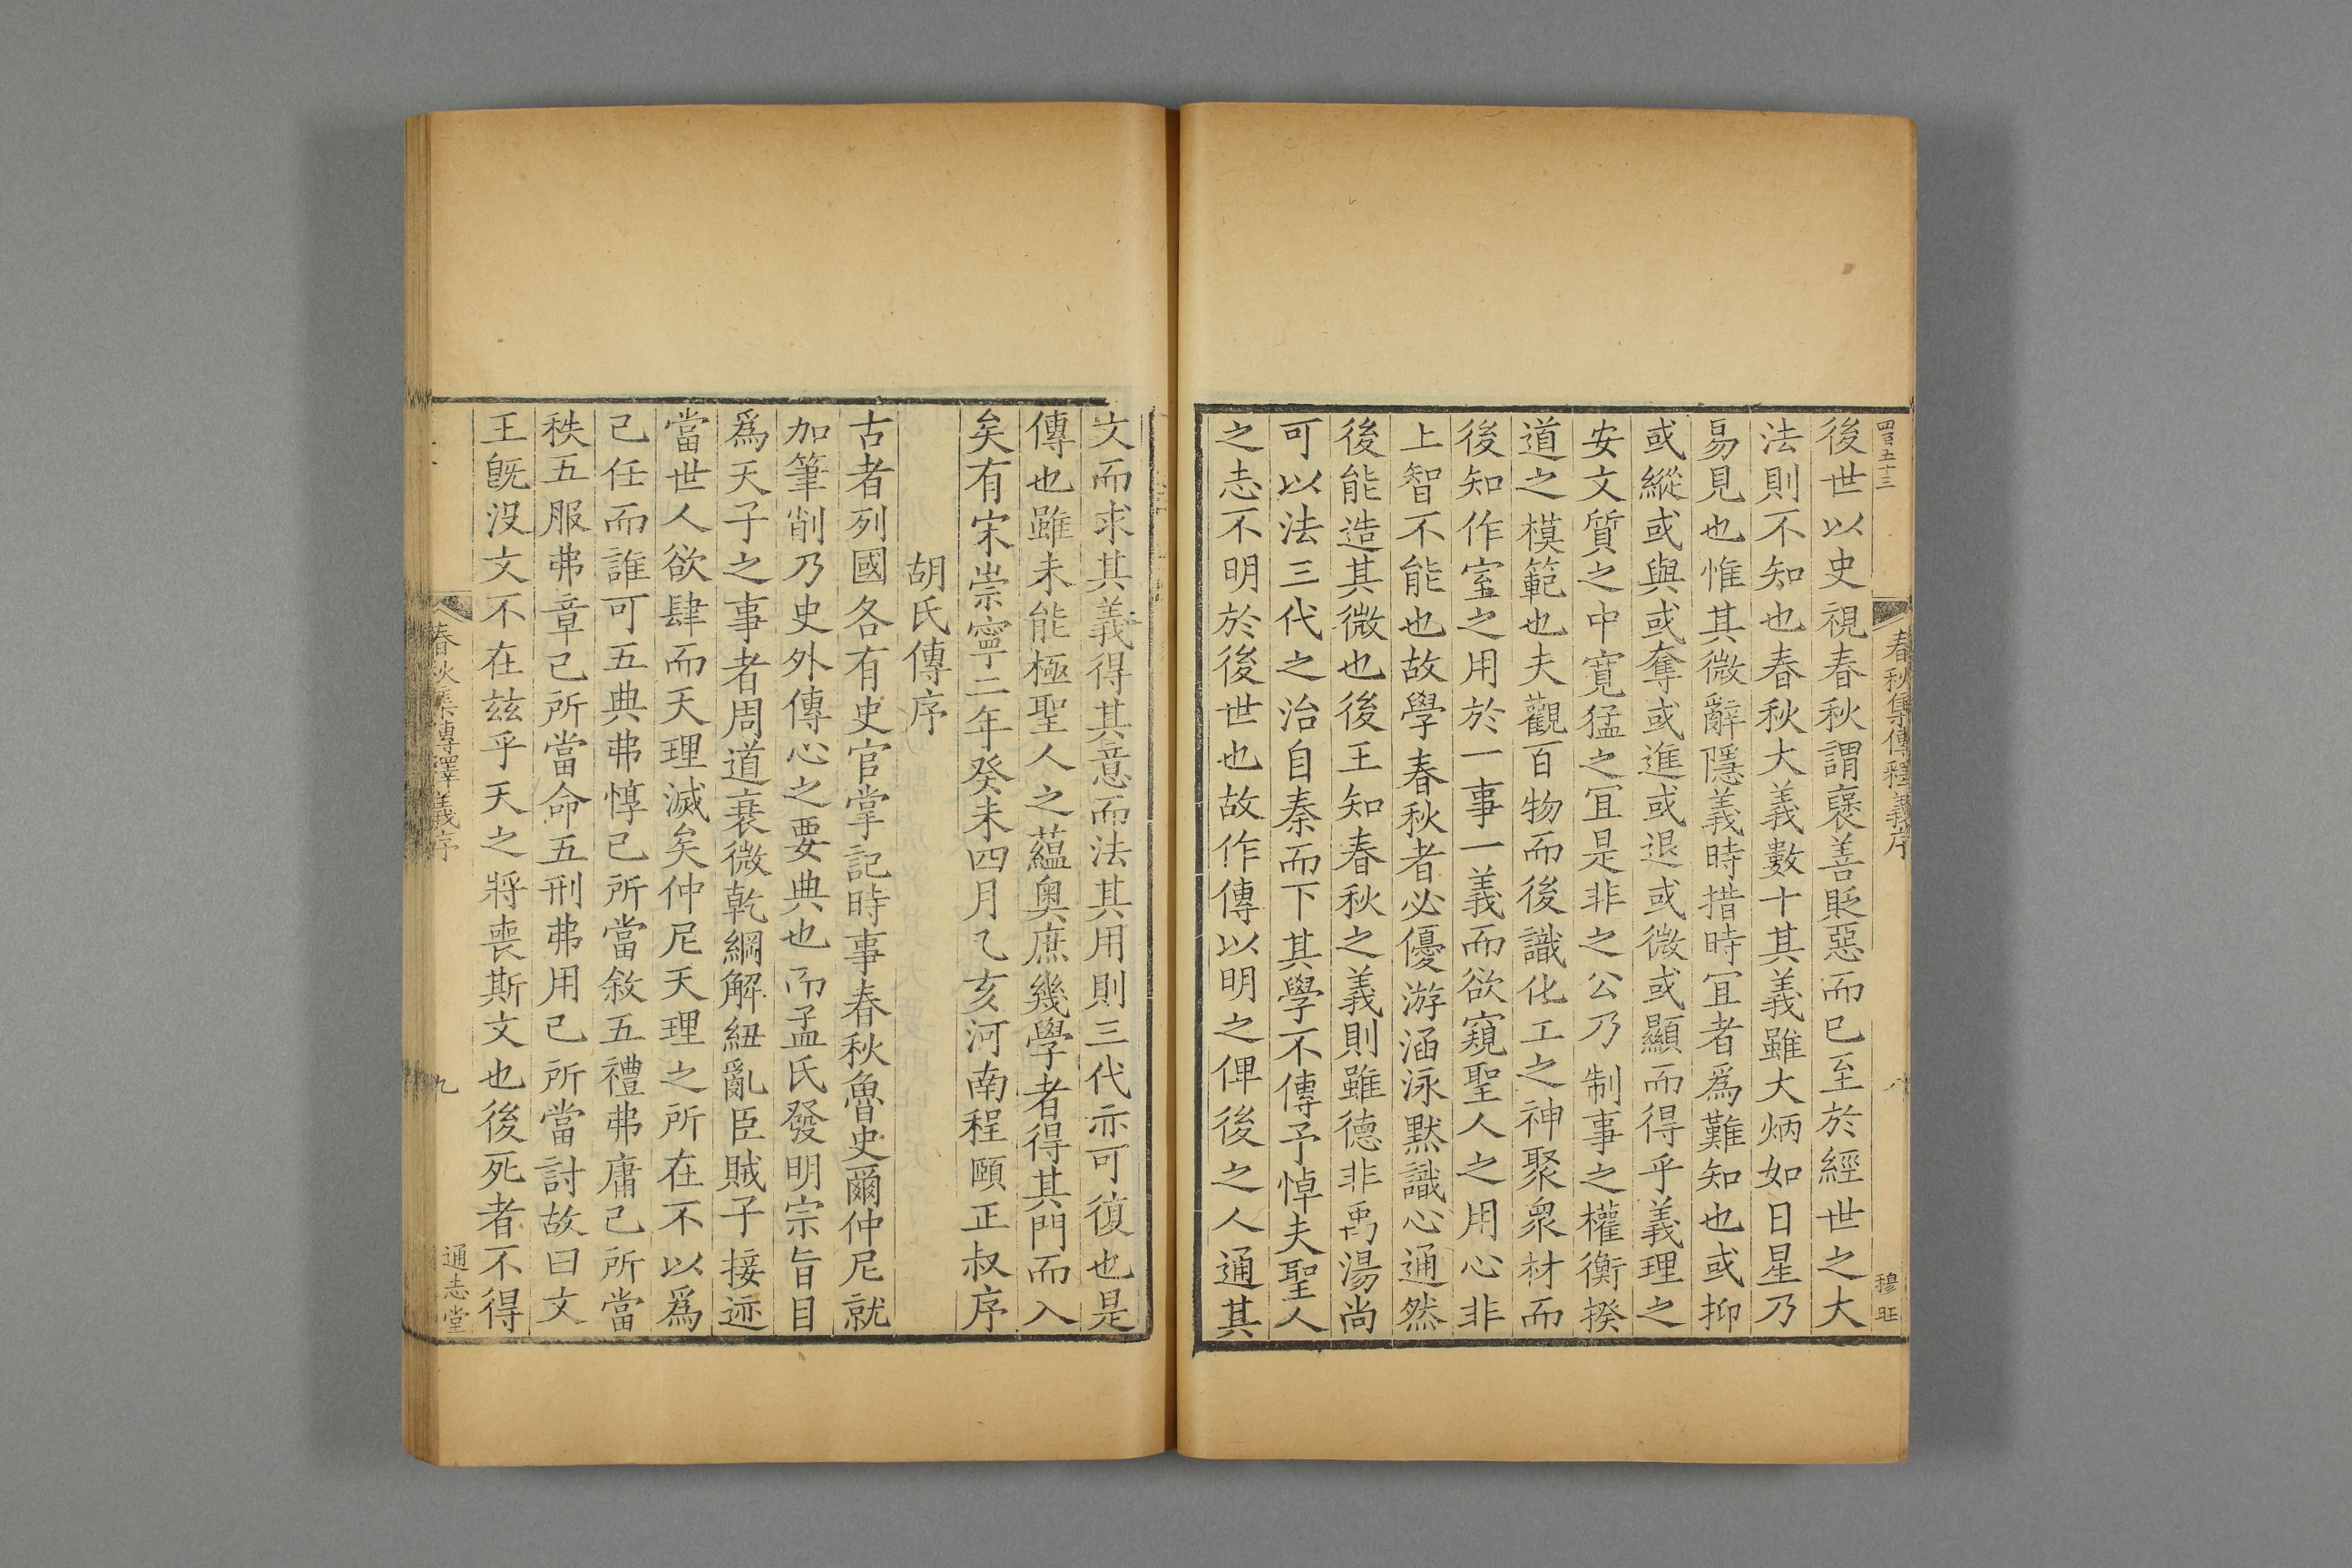 四百五十三
春秋集傳釋義序
八
穆旺
後世以史視春秋謂襃善貶惡而已至於經世之大
法則不知也春秋大義數十其義雖大炳如日星乃
易見也惟其微辭隱義時措時冝者為難知也或抑
或縱或與或奪或進或退或微或顯而得乎義理之
安文質之中寛猛之冝是非之公乃制事之權衡揆
道之模範也夫觀百物而後識化工之神聚衆材而
後知作室之用於一事一義而欲窺聖人之用心非
上智不能也故學春秋者必優游涵泳黙識心通然
後能造其微也後王知春秋之義則雖德非禹湯尚
可以法三代之治自秦而下其學不傳予悼夫聖人
之志不明於後世也故作傳以明之俾後之人通其
文而求其義得其意而法其用則三代亦可復也是
傳也雖未能極聖人之藴奧庶幾學者得其門而入
矣有宋崇寧二年癸未四月乙亥河南程頤正叔序
胡氏傳序
古者列國各有史官掌記時事春秋魯史爾仲尼就
加筆削乃史外傳心之要典也而孟氏發明宗旨目
為天子之事者周道衰微乾綱解紐亂臣賊子接迹
當世人欲肆而天理滅矣仲尼天理之所在不以為
己任而誰可五典弗惇己所當敘五禮弗庸己所當
秩五服弗章己所當命五刑弗用己所當討故曰文
王旣沒文不在兹乎天之將喪斯文也後死者不得
春秋集傳釋義序
九
通志堂